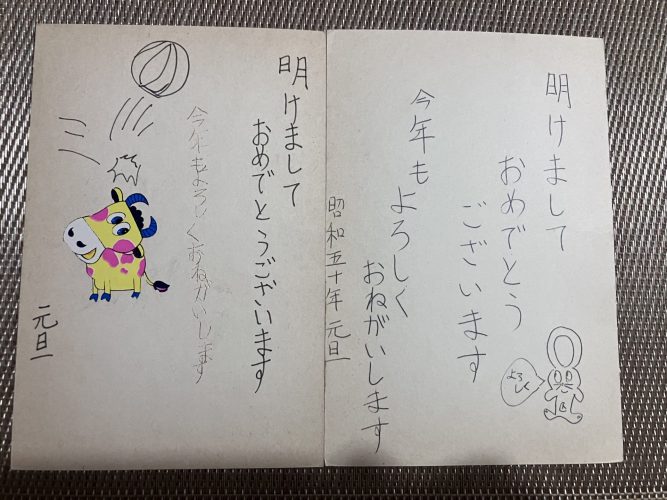 明けまして
おめでとう
ございます
今年も
よろしく
おねがいします
昭和五十年 元旦
よろ
しく
明けまして
おめでとうございます
今年もよろしくおねがいします
元旦